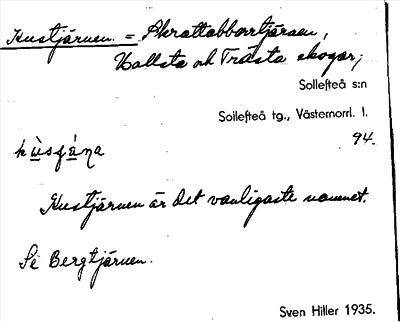 Hustjärnen. = Skrattabborrtjärnen,
Hallsta och Trästa skogar;
Sollefteå s:n
Sollefteå tg., Västernorrl. l.
94.
Hustjärnen är det vanligaste namnet.
Se Bergtjärnen.
Sven Hiller 1935.